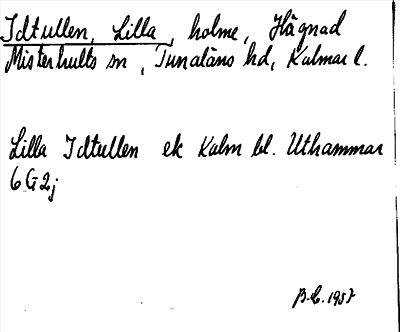 Idtullen, Lilla, holme, Hägnad
Misterhults sn, Tunaläns hd, Kalmar l.
Lilla Idtullen ek Kalm bl. Uthammar
6G2j
1957